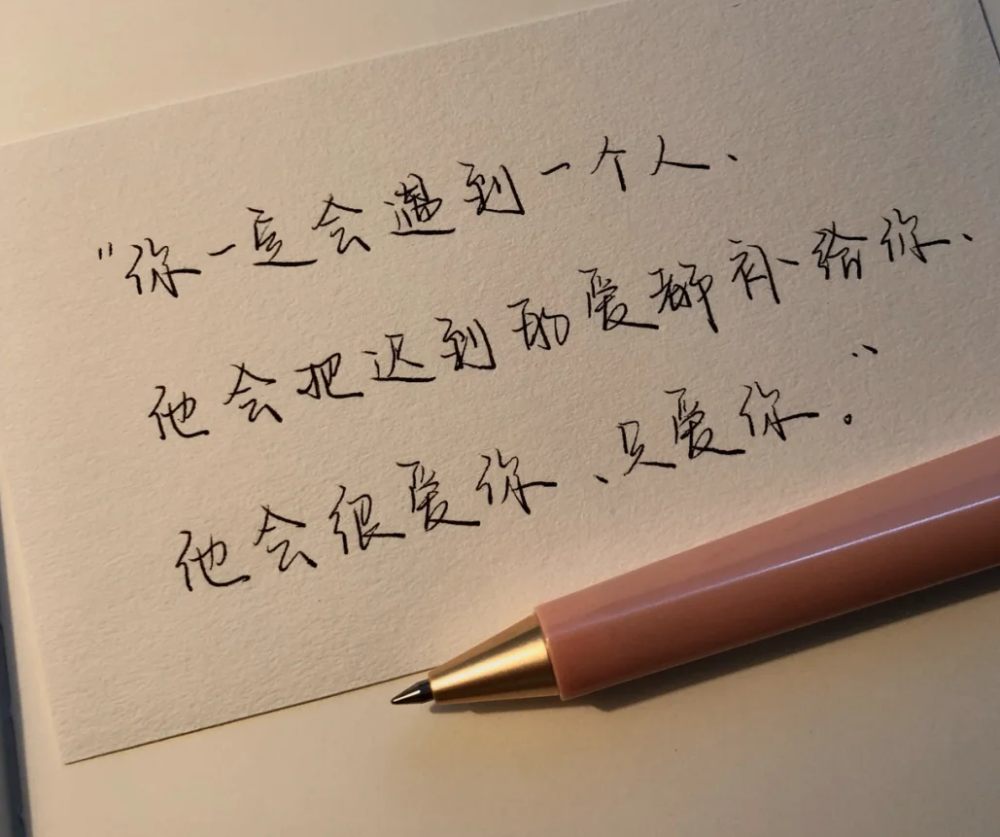 "你一定会遇到一个人、
他会把迟到的爱都补给你、
他会很爱你、只爱你。"